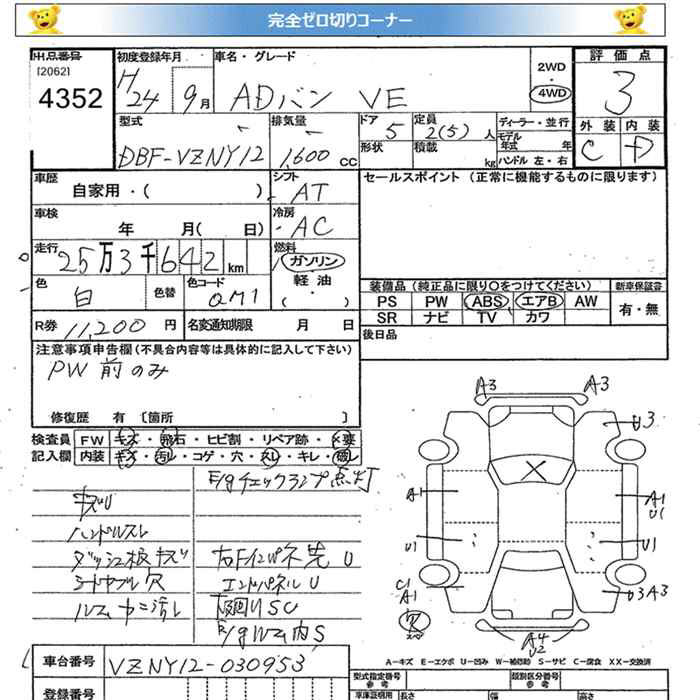 完全ゼロ切りコーナー
出品番号
[2062]
4352
初度登録年月
H
24 9月
車名・グレード
ADバン VE
2WD
4WD
評価点
3
外装 内装
C D
型式
DBF-VZNY12
排気量
1,600 cc
ドア
5
形状
定員
2(5) 人
積載
kg
ディーラー・並行
モデル
年式 年
ハンドル 左・右
車歴
自家用・( )
シフト
AT
セールスポイント (正常に機能するものに限ります)
車検
年 月( 日)
冷房
AC
走行
25万3千642km
燃料
ガソリン
軽油
・( )
色
白
色替
色コード
QM1
装備品 (純正品に限り〇をつけてください)
新車保証書
PS PW ABS エアB AW
SR ナビ TV カワ
有・無
R券 11,200円
名変通知期限 月 日
後日品
注意事項申告欄 (不具合内容等は具体的に記入して下さい)
PW 前のみ
修復歴 有 〔箇所 〕
検査員
記入欄
FW キズ・飛石・ヒビ割・リペア跡・×要
内装 キズ・汚レ・コゲ・穴・スレ・キレ・破レ
E/gチェックランプ点灯
ハンドルスレ
ダッシュ板キズ
シートケブル穴
右Fインパネ先 U
エンドパネル U
下廻りSC
E/gルーム内S
A3 A3
U3
A1
A1
U1
U1
U1
C1
A1
U3 A3
A4
U2
A-キズ E-エクボ U-凹み W-補修跡 S-サビ C-腐食 XX-交換済
車台番号
VZNY12-030953
登録番号
型式指定番号
参考
類別区分番号
参考
車庫証明用
長さ 幅 高さ